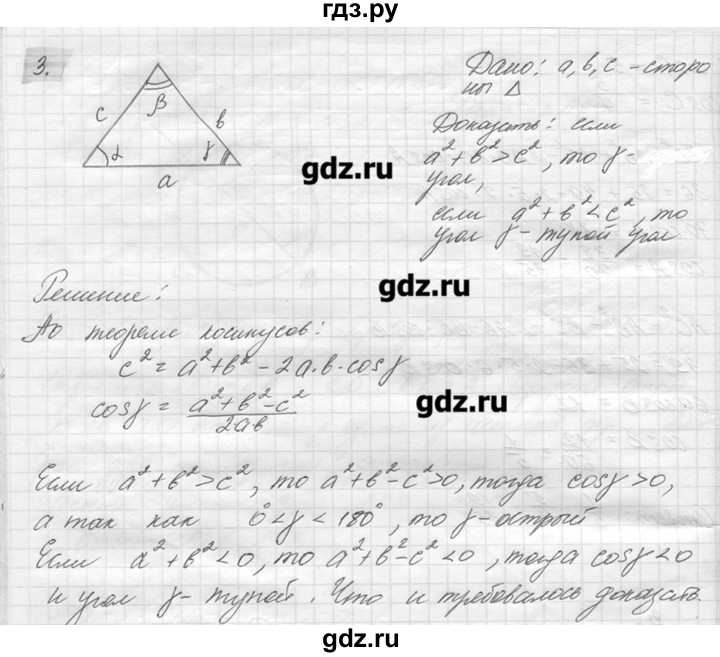 гдз.ру
3.
Дано: a, b, c - сторо
ны Δ
c β b
Доказать: если
a² + b² > c², то γ -
угол,
α γ
a
если a² + b² < c², то
угол γ - тупой угол
gdz.ru
gdz.ru
Решение:
По теореме косинусов:
c² = a² + b² - 2a·b·cosγ
cosγ = (a² + b² - c²)/(2ab)
gdz.ru
Если a² + b² > c², то a² + b² - c² > 0, тогда cosγ > 0,
а так как 0° < γ < 180°, то γ - острый
Если a² + b² < 0, то a² + b² - c² < 0, тогда cosγ < 0
и угол γ - тупой. Что и требовалось доказать.
gdz.ru